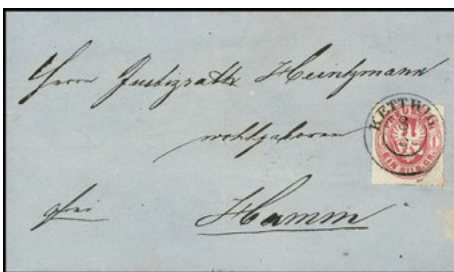 Herrn Justizrath Heintzmann
wohlgeboren
frei
Hamm
KETTWIG
EIN SILBERGR.